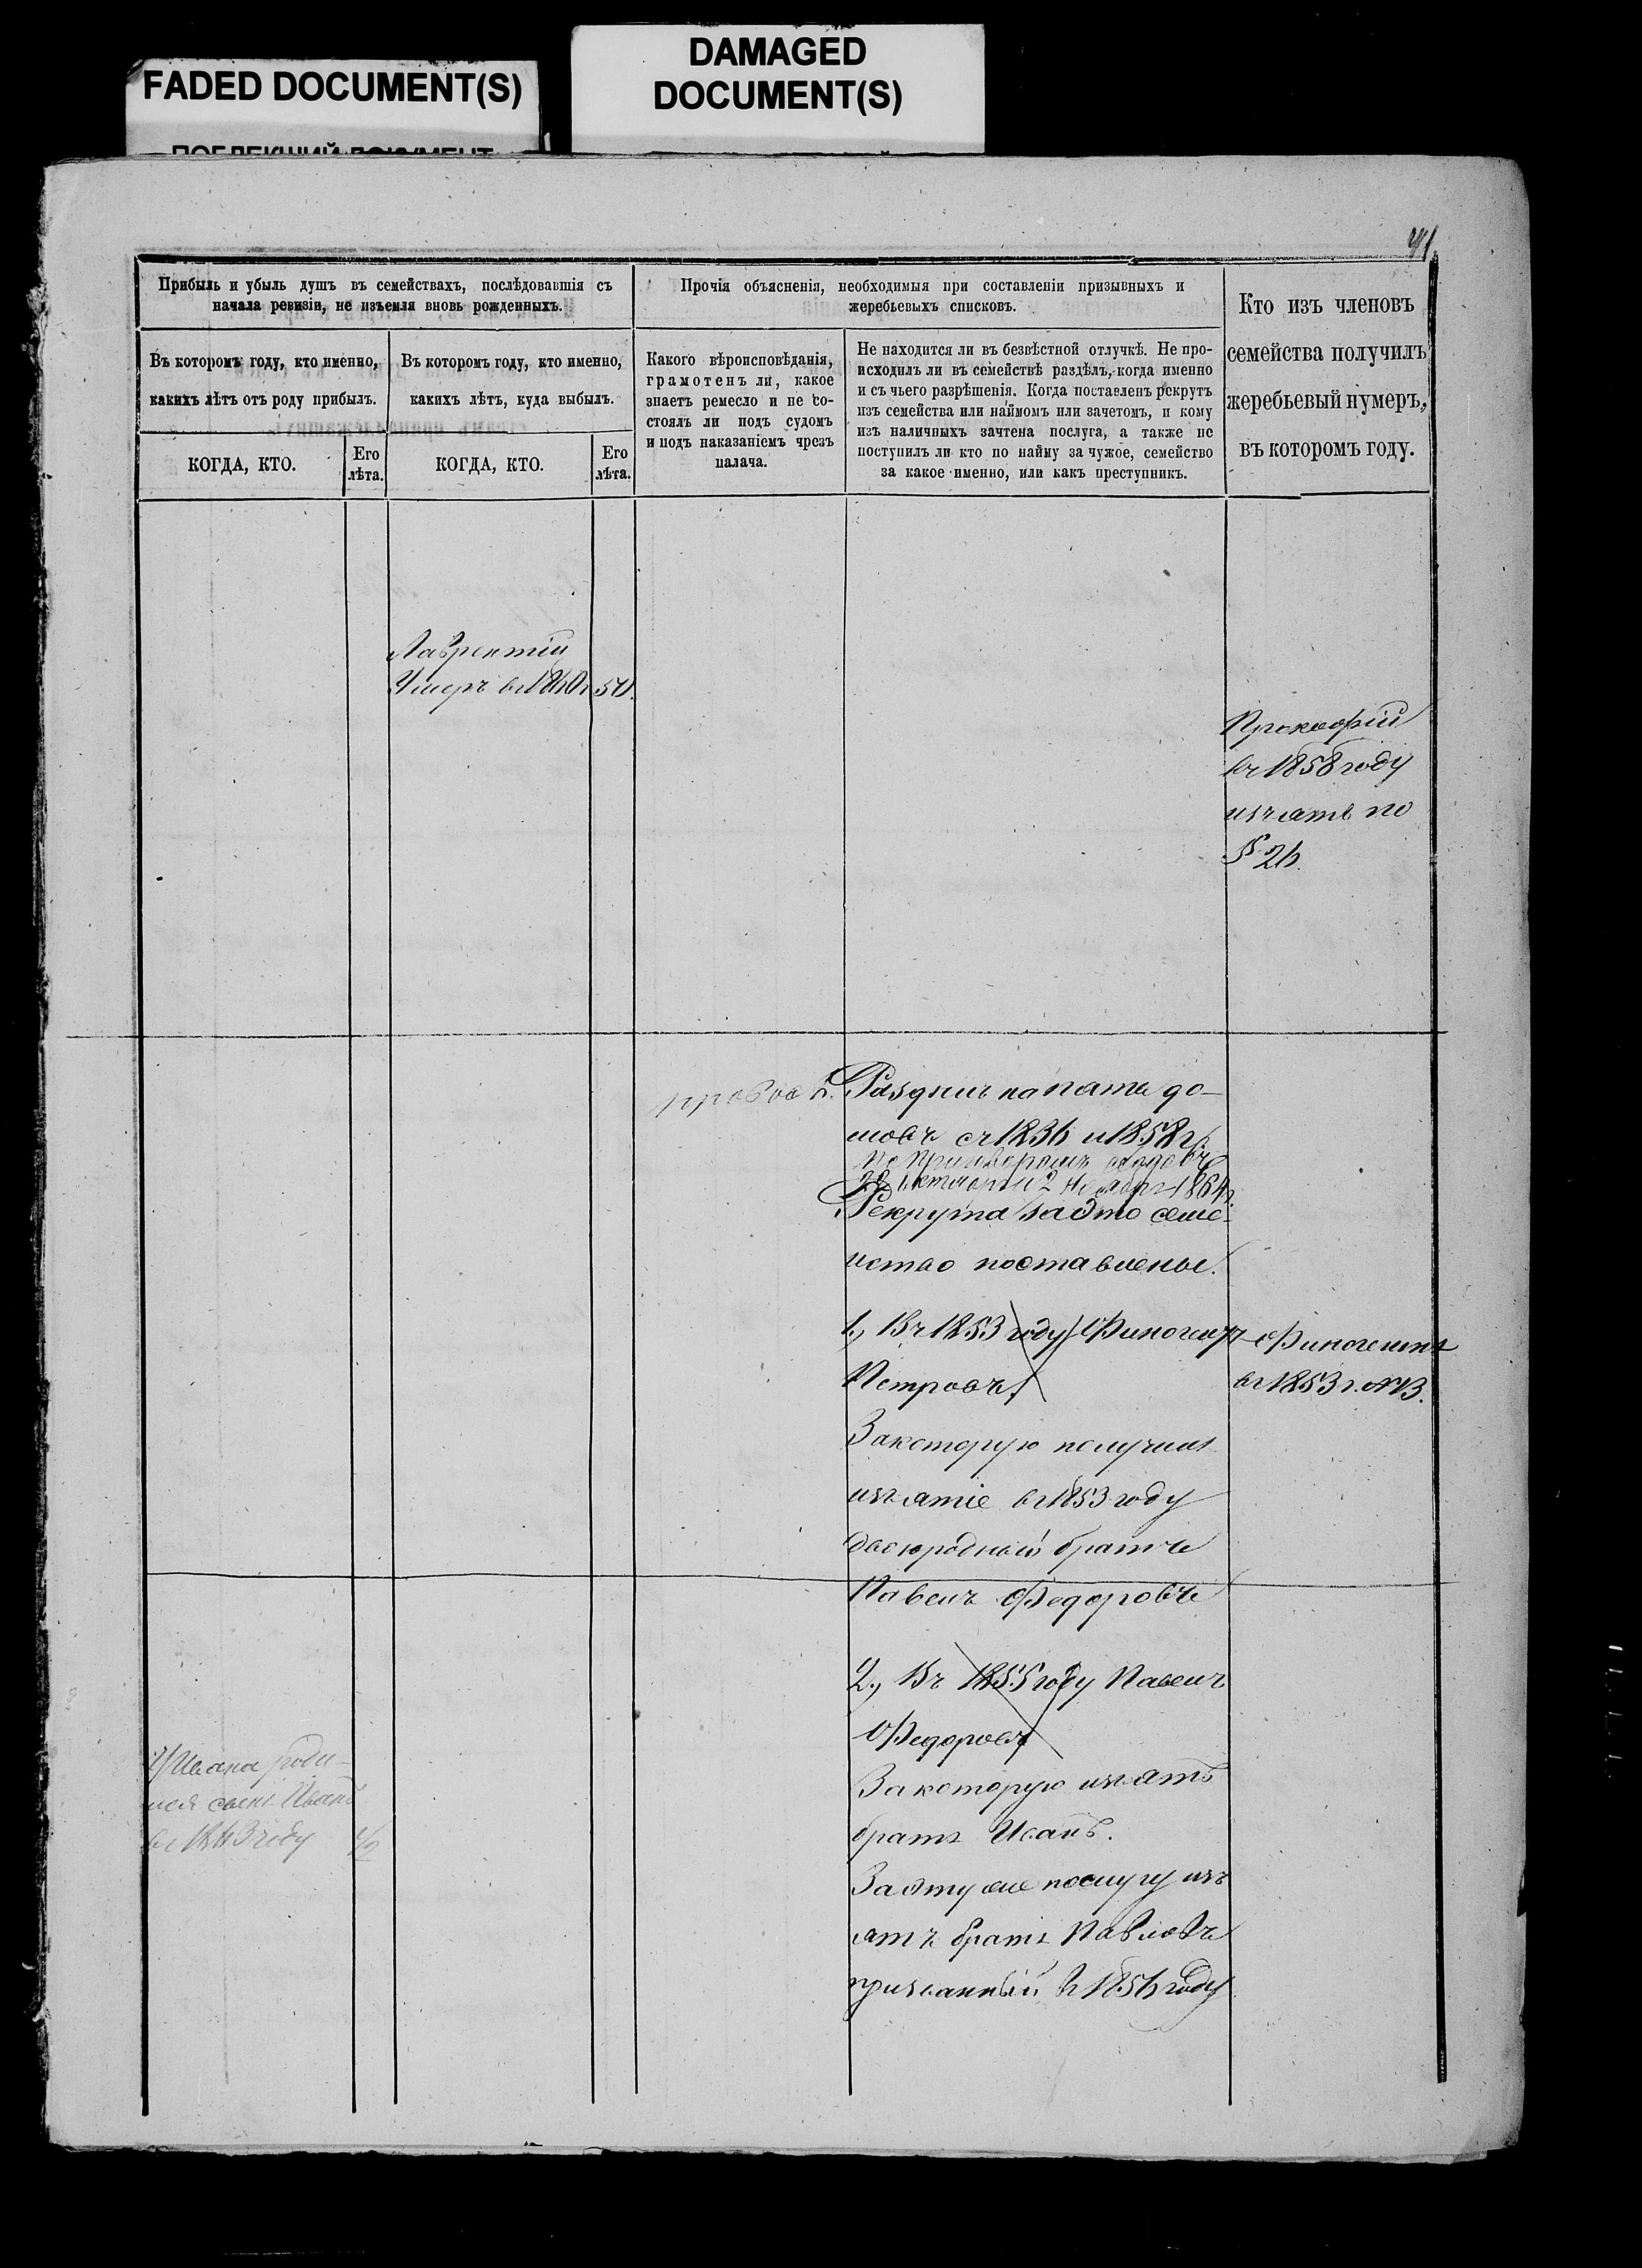 FADED DOCUMENT(S)
DAMAGED
DOCUMENT(S)
41.
Прибыль и убыль душъ въ семействахъ, послѣдовавшія съ
начала ревизіи, не изъемля вновь рожденныхъ.
Въ которомъ году, кто именно,
какихъ лѣтъ отъ роду прибылъ.
КОГДА, КТО.
Его
лѣта.
Въ которомъ году, кто именно,
какихъ лѣтъ, куда выбылъ.
КОГДА, КТО.
Его
лѣта.
Прочія объясненія, необходимыя при составленіи призывныхъ и
жеребьевыхъ списковъ.
Какого вѣроисповѣданія,
грамотенъ ли, какое
знаетъ ремесло и не со-
стоялъ ли подъ судомъ
и подъ наказаніемъ чрезъ
палача.
Не находится ли въ безвѣстной отлучкѣ. Не про-
исходилъ ли въ семействѣ раздѣлъ, когда именно
и съ чьего разрѣшенія. Когда поставленъ рекрутъ
изъ семейства или наймомъ или зачетомъ, и кому
изъ наличныхъ зачтена послуга, а также не
поступилъ ли кто по найму за чужое, семейство
за какое именно, или какъ преступникъ.
Кто изъ членовъ
семейства получилъ
жеребьевый нумеръ,
въ которомъ году.
Лаврентій
Умеръ въ
Прокофій
въ 1858 году
изъятъ по
§ 26.
Раздѣлъ на пять до-
мовъ съ 1836 и 1858 г.
по приговорамъ
1864 г.
Рекрута за это семе-
йство поставлены.
1., Въ 1853 году Финогенъ
Петровъ,
За которую получилъ
изъятіе въ 1853 году
двоюродный братъ
Павелъ Федоровъ
Финогенъ
въ 1853 г. №
2., Въ 1855 году Павелъ
Федоровъ
За которую изъятъ
братъ Иванъ.
За эту же послугу изъ
ятъ братъ Павловъ
въ 1856 году
У Ивана роди-
лся сынъ Иванъ